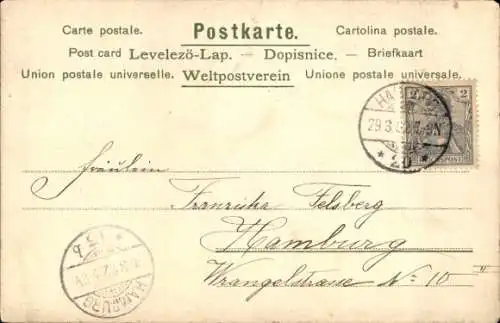 Carte postale. Postkarte. Cartolina postale.
Post card Levelezö-Lap. — Dopisnice. — Briefkaart
Union postale universelle. Weltpostverein Unione postale universale.
2 2
29.3.
* 20 *
Fräulein
Felsberg
Hamburg
Wrangelstrasse No 10 II
HAMBURG